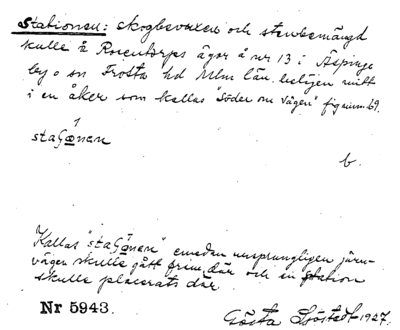 Stationen: skogbevuxen och stenbemängd
kulle å Rosentorps ägor å nr 13 i Äspinge
by o sn Frosta hd Mlm län. belägen mitt
i en åker som kallas "Söder om vägen" fig num 69.
b.
Kallas "sta" emedan ursprungligen järn-
vägen skulle gått fram där och en station
skulle placerats där
Nr 5943.
Gösta Sjöstedt 1927.